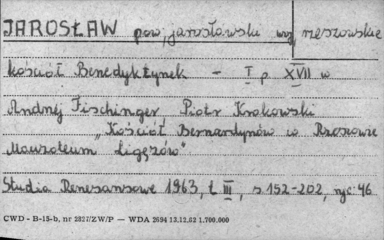 JAROSŁAW pow, jarosławski woj rzeszowskie
kościół Benedyktynek - I p XVII w
Andrzej Fischinger Piotr Krakowski
"Kościół Bernardynów w Rzeszowie
Mauzoleum Ligęzów"
Studia Renesansowe 1963, t III, s. 152-202, ryc: 46
CWD - B-15-b, nr 2827/ZW/P — WDA 2694 13.12.62 1.700.000